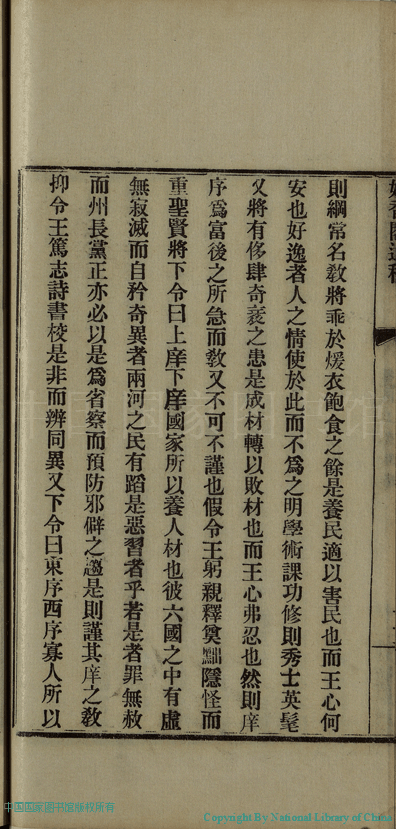 則綱常名教將乖於煖衣飽食之餘是養民適以害民也而王心何
安也好逸者人之情使於此而不爲之明學術課功修則秀士英髦
又將有侈肆奇衺之患是成材轉以敗材也而王心弗忍也然則庠
序爲富後之所急而教又不可不謹也假令王躬親釋奠黜隱怪而
重聖賢將下令曰上庠下庠國家所以養人材也彼六國之中有虛
無寂滅而自矜奇異者兩河之民有蹈是惡習者乎若是者罪無赦
而州長黨正亦必以是爲省察而預防邪僻之端是則謹其庠之教
抑令王篤志詩書校是非而辨同異又下令曰東序西序寡人所以
中国国家图书馆版权所有
Copyright By National Library of China